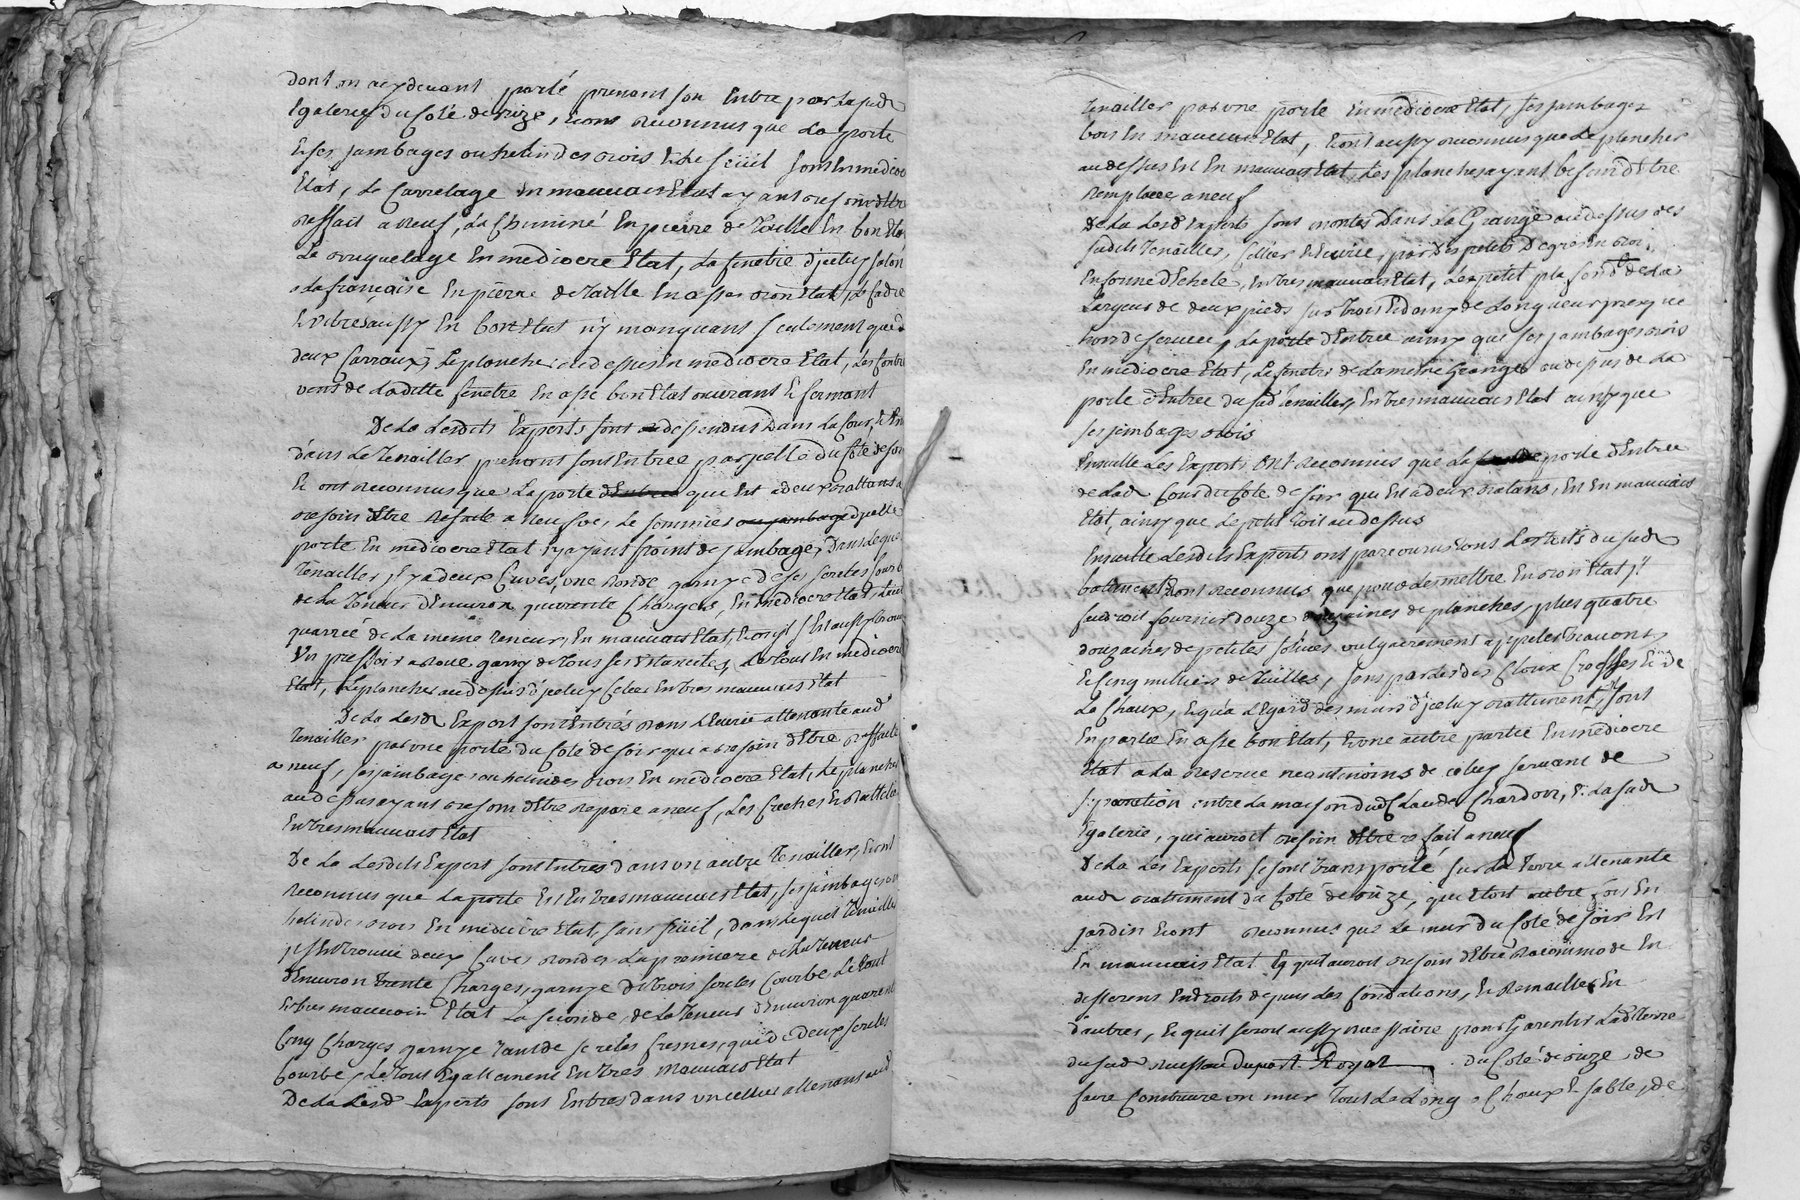 dont on a cydevant parlé prenant son Entré par la sud
Egalerie du Coté de bize, Eons reconnus que La porte
Et ses jambages ou helindes bois Et le seüil sont En médioc
Etat, Le Carrelage En mauvais Etat ayant besoin dEtre
reffait a neuf, La Cheminé En pierre de Taille En bon Etat
Le briquetage En mediocre Etat, La fenetre d'jceluy salon
a La francaise En pierre de Taille En assés bon Etat, Le Cadre
Et Vitres aussy En bon Etat n'y manquant seulement que
deux Carraux, Le planche audessus En mediocre Etat, Les Contre
vents de Laditte fenetre En assé bon Etat ouvrant Et fermant
De La Lesdits Experts sont dessendus Dans La Cour, Et En
dans Le Tenailler prenant sont Entree par jcelle du Coté de soir
Et ont reconnus que La porte dEntree que Est a deux battans a
besoin dEtre Refaite a neufve, Le sommier ou jambage d'jcelle
porte En mediocre Etat ny ayant point de jambage, Dans Leque
Tenailler jl y a deux Cuves, une Ronde garnye de ses sercles Courb
de La Teneur dEnviron quarente Charges, En mediocre Etat, Laut
quarrée de La meme teneur, En mauvais Etat, Et ou jl s'Est aussy trouv
Un pressoir a Roue garny de tous ses Ustancilles, Le tous En mediocre
Etat, Le plancher audessus d'jceluy Celier En tres mauvais Etat
De La Lesd Expert sont Entrés dans LEcurie attenante aud
Tenailler par une porte du Coté de soir qui a besoin dEtre Reffaite
a neuf, ses jambage ou helindes bois En mediocre Etat, Le planche
audessus ayant besoin dEtre reparé a neuf, Les Creches Et Rattelie
En tres mauvais Etat
De La Lesdits Expert sont Entres dans un autre Tenailler, Eont
Reconnus que La porte Est En tres mauvais Etat, ses jambages ou
helindes bois En mediocre Etat, sans seüil, dans Lequel Tenaille
jl s'Est trouvé deux Cuves rondes La premiere de La teneur
dEnviron trente Charges, garnye de trois sercles Courbes Le tout
En tres mauvais Etat La seconde, de La Teneur dEnviron quarente
Cinq Charges garnye tant de sercles fresnes, que de deux sercles
Courbes, Le tout Egallement En tres mauvais Etat
De La Lesd Experts sont Entres dans un Cellier attenant aud
Tenailler par une porte En mediocre Etat, ses jambages
bois En mauvais Etat, Eont aussy reconnus que Le plancher
audessus Est En mauvais Etat, Les planches ayant besoin dEtre
remplacé a neuf
De La Lesd Experts sont montés Dans La Grange au dessus des
susdits Tenailles, Cellier Et Ecurie, par Des petits Degres En bois
En forme dEchele, En tres mauvais Etat, Le petit plafond de La
Largeur de deux pieds sur trois Et demy de Longueur presque
hors de service, La porte dEntree ainsy que ses jambages bois
En mediocre Etat, La fenetre de La meme Grange audessus de La
porte dEntree du sud Tenailler, En tres mauvais Etat ainsy que
ses jambages bois
Ensuitte Les Experts Ont reconnus que La porte dEntree
de Lad Cour du Coté de soir qui Est a deux batans, Est En mauvais
Etat, ainsy que Le petit Toit audessus
Ensuitte Lesdits Experts ont parcourus tous Les Toits du sud
batiment Eont reconnus que pour Les mettre En bon Etat jl
faudroit fournir douze douzaines de planches, plus quatre
douzaines de petites solives vulgairement appellés travons,
Et Cinq milliers de tuilles, sans parler des Cloux Crosses Et de
La Chaux, Et qu'a LEgard des murs d'jceluy battiment, jls sont
En partie En assé bon Etat, Et une autre partie En mediocre
Etat a La reserve neantmoins de celuy servant de
separation entre La maison dud Claude Chardon, Et La sud
Egalerie, qui auroit besoin dEtre refait a neuf
De La Les Experts se sont transporté sur La terre attenante
aud battiment du Coté de bize, que Etoit autre fois En
jardin Eont reconnus que Le mur du Coté de soir Est
En mauvais Etat Et qu'il auroit besoin dEtre racommodé En
differens Endroits depuis Les fondations, Et Remaillé En
d'autres, Et qu'il seroit aussy necessaire pour Garentir Lad Terre
du sud ruisseau du port Royat du Coté de bize de
faire Construire un mur Tout Le Long a Chaux Et sable, de